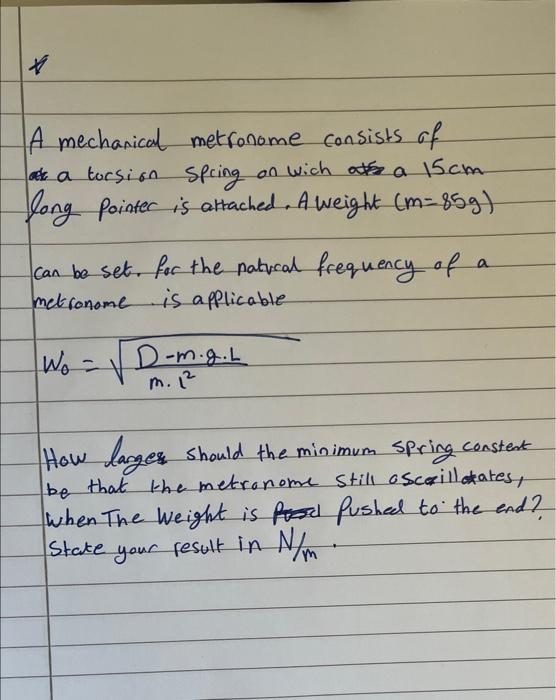 A mechanical metronome consists of
a torsion spring on wich a 15cm
long pointer is attached. A weight (m=85g)
can be set. for the natural frequency of a
metronome is applicable
W₀ = √ D-m.g.L
m.l²
How larges should the minimum spring constent
be that the metronome still oscaillatates,
when The weight is pushed to the end?
State your result in N/m.